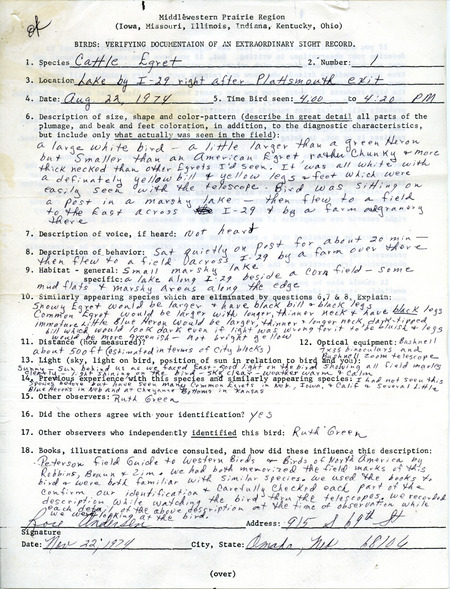 ok
Middlewestern Prairie Region
(Iowa, Missouri, Illinois, Indiana, Kentucky, Ohio)
BIRDS: VERIFYING DOCUMENTAION OF AN EXTRAORDINARY SIGHT RECORD.
1. Species Cattle Egret 2. Number: 1
3. Location Lake by I-29 right after Plattsmouth exit
4. Date: Aug 22, 1974 5. Time Bird seen: 4:00 to 4:20 PM
6. Description of size, shape and color-pattern (describe in great detail all parts of the
plumage, and beak and feet coloration, in addition, to the diagnostic characteristics,
but include only what actually was seen in the field):
a large white bird - a little larger than a green Heron
but smaller than an American Egret, rather chunky & more
thick necked than other Egrets I'd seen. It was all white with
a definately yellow bill & yellow legs & feet which were
easily seen with the telescope. Bird was sitting on
a post in a marshy lake - then flew to a field
to the East across I-29 & by a farm & granary
there
7. Description of voice, if heard: Not heard
8. Description of behavior: Sat quietly on post for about 20 min-
then flew to a field across I-29 by a farm over there
9. Habitat - general: Small marshy lake
specific: a lake along I-29 beside a corn field - some
mud flats & marshy areas along the edge
10. Similarly appearing species which are eliminated by questions 6,7 & 8. Explain:
Snowy Egret would be larger & have black bill & black legs
Common Egret would be larger with longer, thinner neck & have black legs
immature Little Blue Heron would be larger, thinner & longer neck, dark-tipped
bill which would look dark even if light was wrong for to be bluish & legs
would be more greenish - not bright yellow
11. Distance (how measured): 12. Optical equipment: Bushnell
about 500 ft (estimated in terms of city blocks) 7x35 binoculars &
Bushnell zoom telescope
13. Light (sky, light on bird, position of sun in relation to bird and you):
Sunny - Sun behind us as we faced East - good light on the bird showing all field marks
sky clear - weather warm & calm.
14. Previous experience with this species and similarly appearing species: I had not seen this
species before but have seen many Common Egrets in Neb, Iowa, & Calif & several Little
Blue Herons in Neb and at Cheyenne Bottoms in Kansas
15. Other observers: Ruth Green
16. Did the others agree with your identification? yes
17. Other observers who independently identified this bird: Ruth Green
18. Books, illustrations and advice consulted, and how did these influence this description:
Peterson Field Guide to Western Birds & Birds of North America by
Robbins, Bruun & Zim & we had both memorized the field marks of this
bird & were both familiar with similar species. We used the books to
confirm our identification & carefully checked each part of the
description while watching the bird thru the telescope. We recorded
each detail of the above description at the time of observation while
we were looking at the bird.
Address: 915 S 69th St
Signature
Date: Nov 22, 1974 City, State: Omaha, Neb 68106
(over)